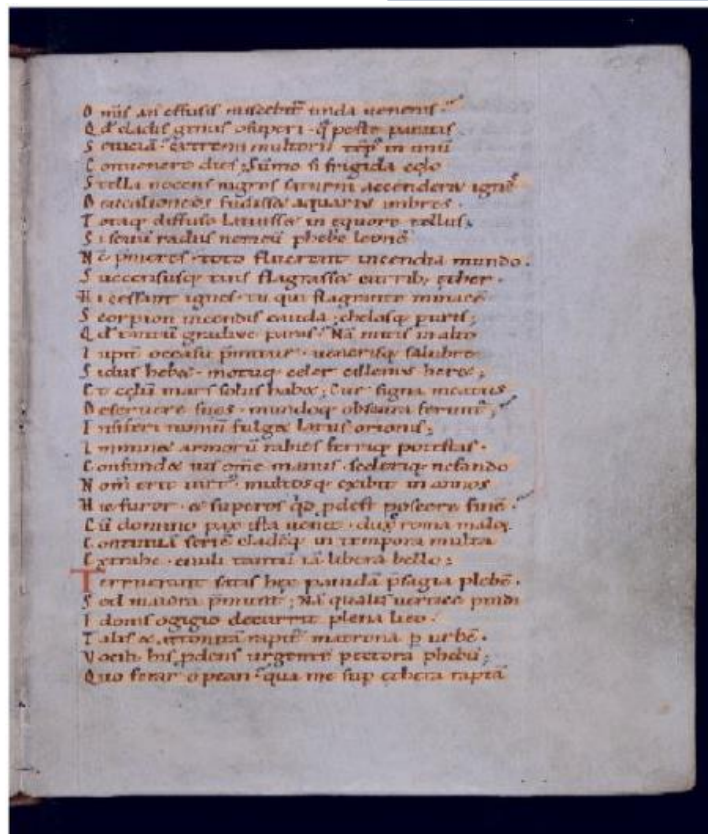 O mis an effusis miscebit̄ unda uenenis·
Q đ cladis genus o superi· q̄ peste paratis
S euiciā· extremi multorū tēp̄ in unū
C onuenere dies; Sūmo si frigida celo
S tella nocens nigros saturni accenderet igneˢ
D eucalioneos fudisset aquariꝰ imbres·
T otaq; diffuso latuisset in equore tellus;
S i seuū radiis nemeū phebe leonē
N c̄ p̄meres· toto fluerent incendia mundo·
S uccensusq; tuis flagrasset currib; ether·
H i cessant ignes· tu qui flagrante minacē
S corpion incendis cauda; chelasq; puris;
Q đ tantū gradiue paras· Nā mitis in alto
I upit̄ occasu p̄mitur· uenerisq; salubre
S idus hebet· motuq; celer cillenius heret;
E t celū mars solus habet; Cur signa meatus
D eseruere suos· mundoq; obscura ferunt̄;
E nsiferi nimiū fulget latus orionis;
I mminet armorū rabies ferriq; potestas·
C onfundet ius om̄e manus· sceleriq; nefando
N om̄ erit uirtꝰ· multosq; exibit in annos
H ic furor· et superos qđ pdest poscere finē·
C ū domino pax ista uenit· duc roma maloꝝ
C ontinuā seriē cladēq; in tempora multa
E xtrahe· ciuili tantū iā libera bello;
T erruerant satis hec pauidā p̄sagia plebē·
S ed maiora p̄munt; Nā qualis uertice pindi
E donis ogigio decurrit plena lieo·
T alis et attonitā rapit̄ matrona p urbē·
V ocib; his pdens urgentē pectora phebū;
Q uo feror o pean· qua me sup ethera raptā